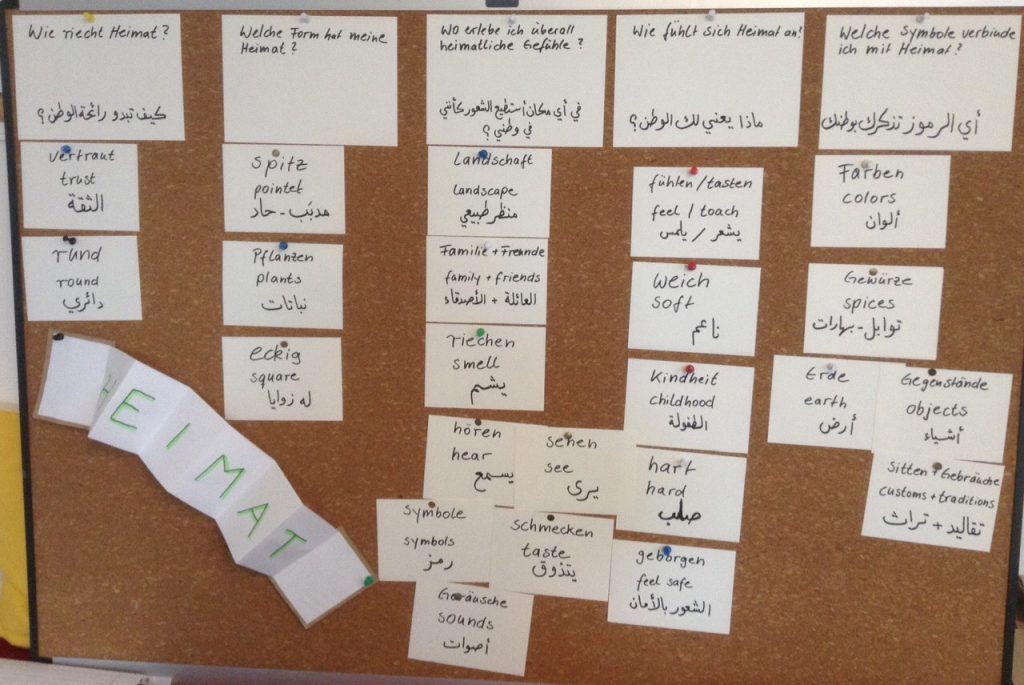 Wie riecht Heimat?
كيف تبدو رائحة الوطن؟
vertraut
trust
الثقة
rund
round
دائري
HEIMAT
Welche Form hat meine
Heimat?
spitz
pointet
مدبّب - حاد
Pflanzen
plants
نباتات
eckig
square
له زوايا
Wo erlebe ich überall
heimatliche Gefühle?
في أي مكان أستطيع الشعور كأنني
في وطني؟
Landschaft
landscape
منظر طبيعي
Familie + Freunde
family + friends
العائلة + الأصدقاء
riechen
smell
يشم
hören
hear
يسمع
sehen
see
يرى
symbole
symbols
رمز
schmecken
taste
يتذوق
Geräusche
sounds
أصوات
Wie fühlt sich Heimat an!
ماذا يعني لك الوطن؟
fühlen / tasten
feel / toach
يشعر / يلمس
weich
soft
ناعم
Kindheit
childhood
الطفولة
hart
hard
صلب
geborgen
feel safe
الشعور بالأمان
Welche Symbole verbinde
ich mit Heimat?
أي الرموز تذكرك بوطنك
Farben
colors
ألوان
Gewürze
spices
توابل - بهارات
Erde
earth
أرض
Gegenstände
objects
أشياء
Sitten + Gebräuche
customs + traditions
تقاليد + تراث